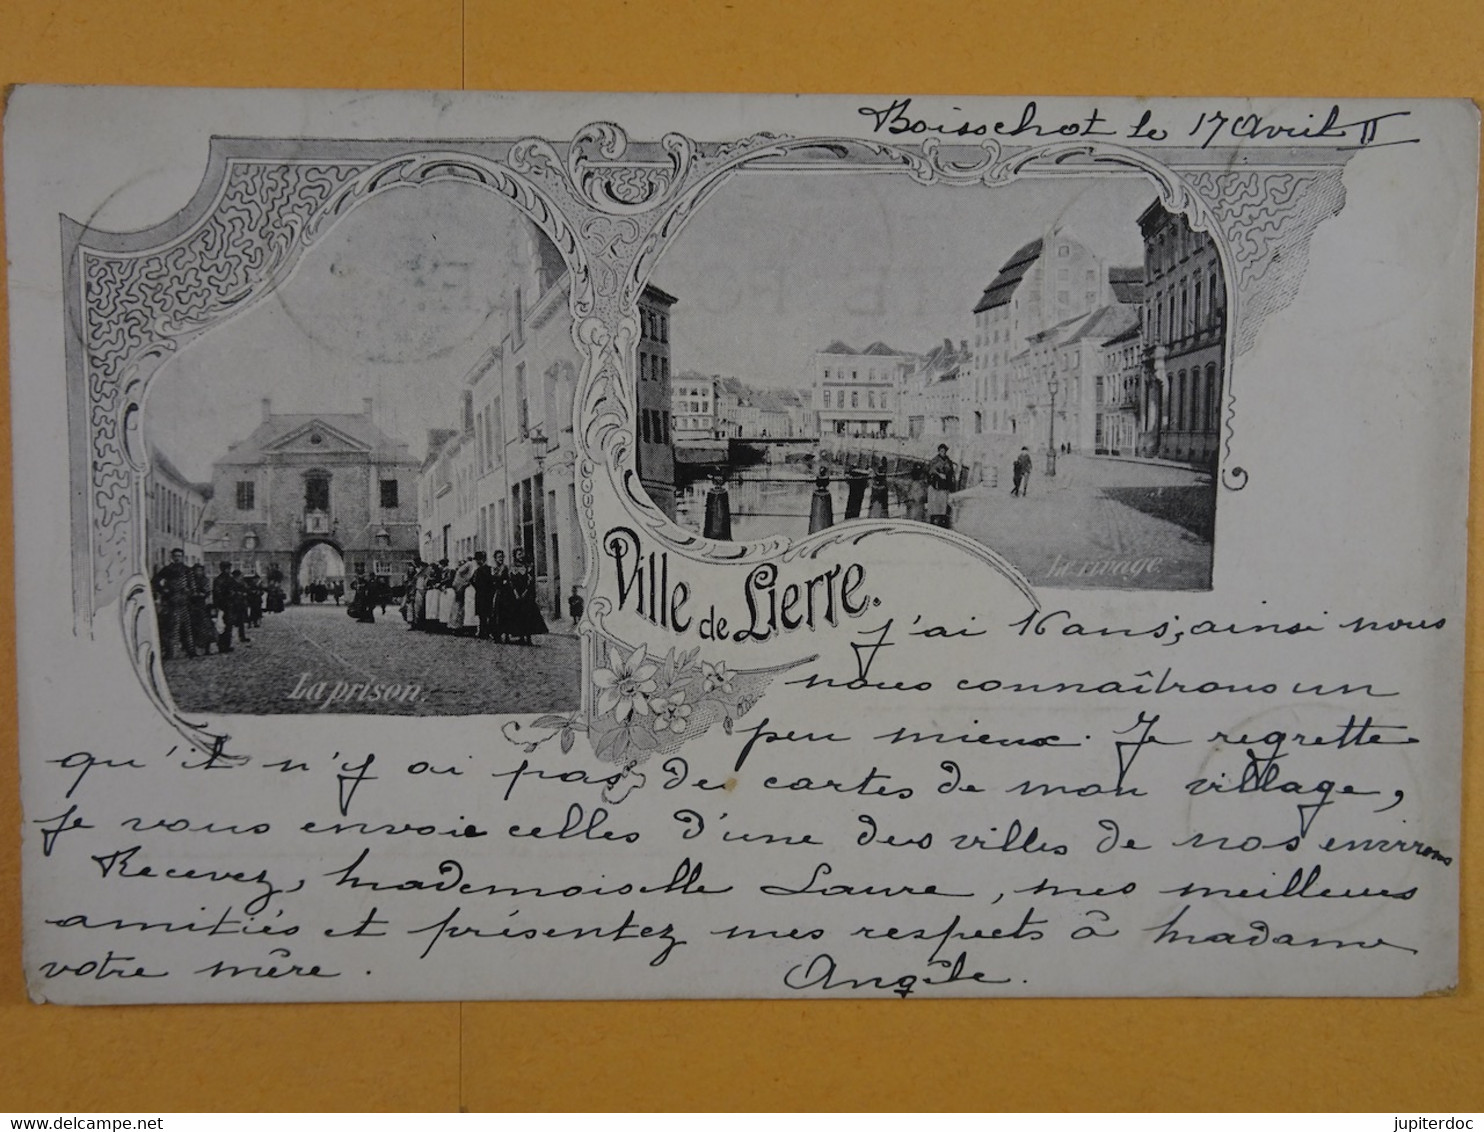 Boisschot le 17 Avril II
La prison.
Le rivage
Ville de Lierre.
J'ai 16 ans; ainsi nous
nous connaîtrons un
peu mieux. Je regrette
qu'il n'y ai pas de cartes de mon village,
je vous envoie celles d'une des villes de nos environs
Recevez, Mademoiselle Laure, mes meilleures
amitiés et présentez mes respects à Madame
votre mère.
Angèle.
jupiterdoc